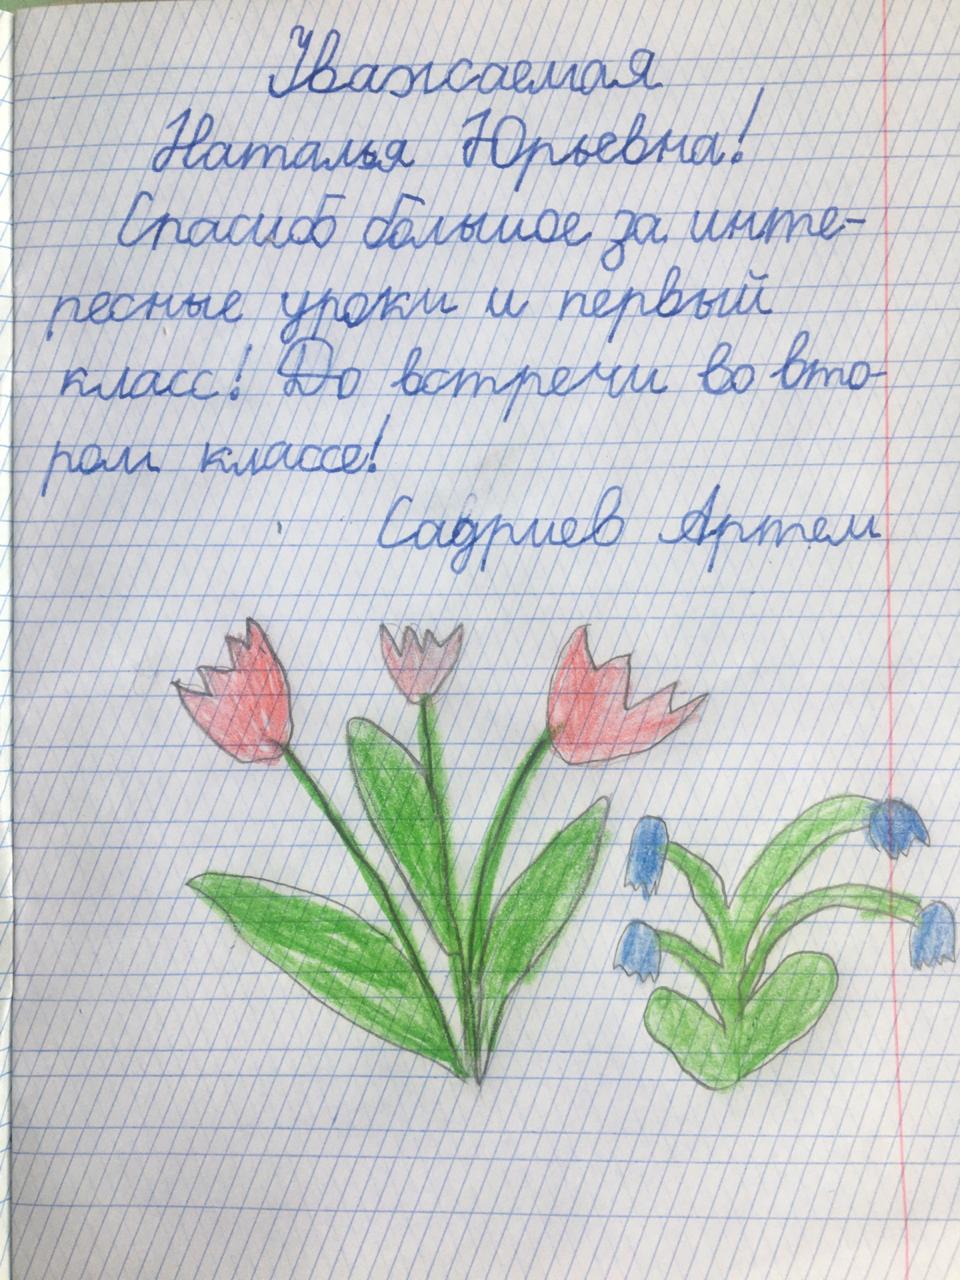 Уважаемая
Наталья Юрьевна!
Спасиоб большое за инте-
ресные уроки и первый
класс! До встречи во вто-
ром классе!
Садриев Артем